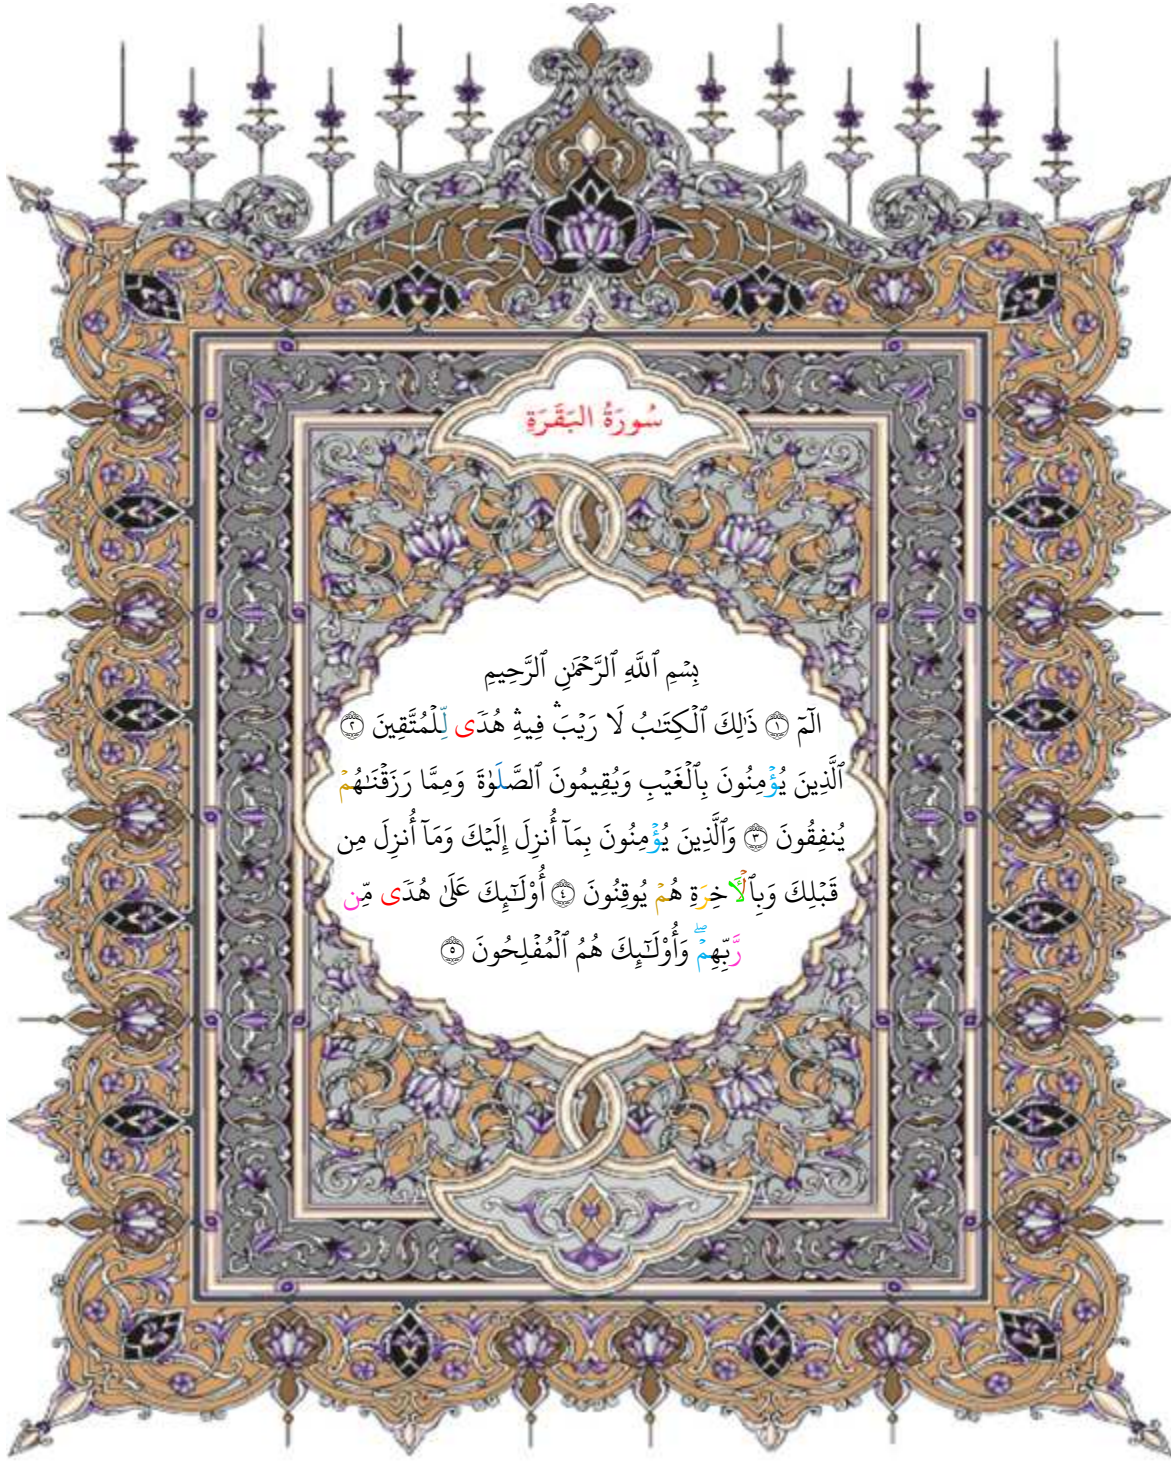 سُورَةُ البَقَرَةِ
بِسۡمِ ٱللَّهِ ٱلرَّحۡمَٰنِ ٱلرَّحِيمِ
الٓمٓ ١ ذَٰلِكَ ٱلۡكِتَٰبُ لَا رَيۡبَۛ فِيهِۛ هُدٗى لِّلۡمُتَّقِينَ ٢
ٱلَّذِينَ يُؤۡمِنُونَ بِٱلۡغَيۡبِ وَيُقِيمُونَ ٱلصَّلَوٰةَ وَمِمَّا رَزَقۡنَٰهُمۡ
يُنفِقُونَ ٣ وَٱلَّذِينَ يُؤۡمِنُونَ بِمَآ أُنزِلَ إِلَيۡكَ وَمَآ أُنزِلَ مِن
قَبۡلِكَ وَبِٱلۡأٓخِرَةِ هُمۡ يُوقِنُونَ ٤ أُوْلَٰٓئِكَ عَلَىٰ هُدٗى مِّن
رَّبِّهِمۡۖ وَأُوْلَٰٓئِكَ هُمُ ٱلۡمُفۡلِحُونَ ٥